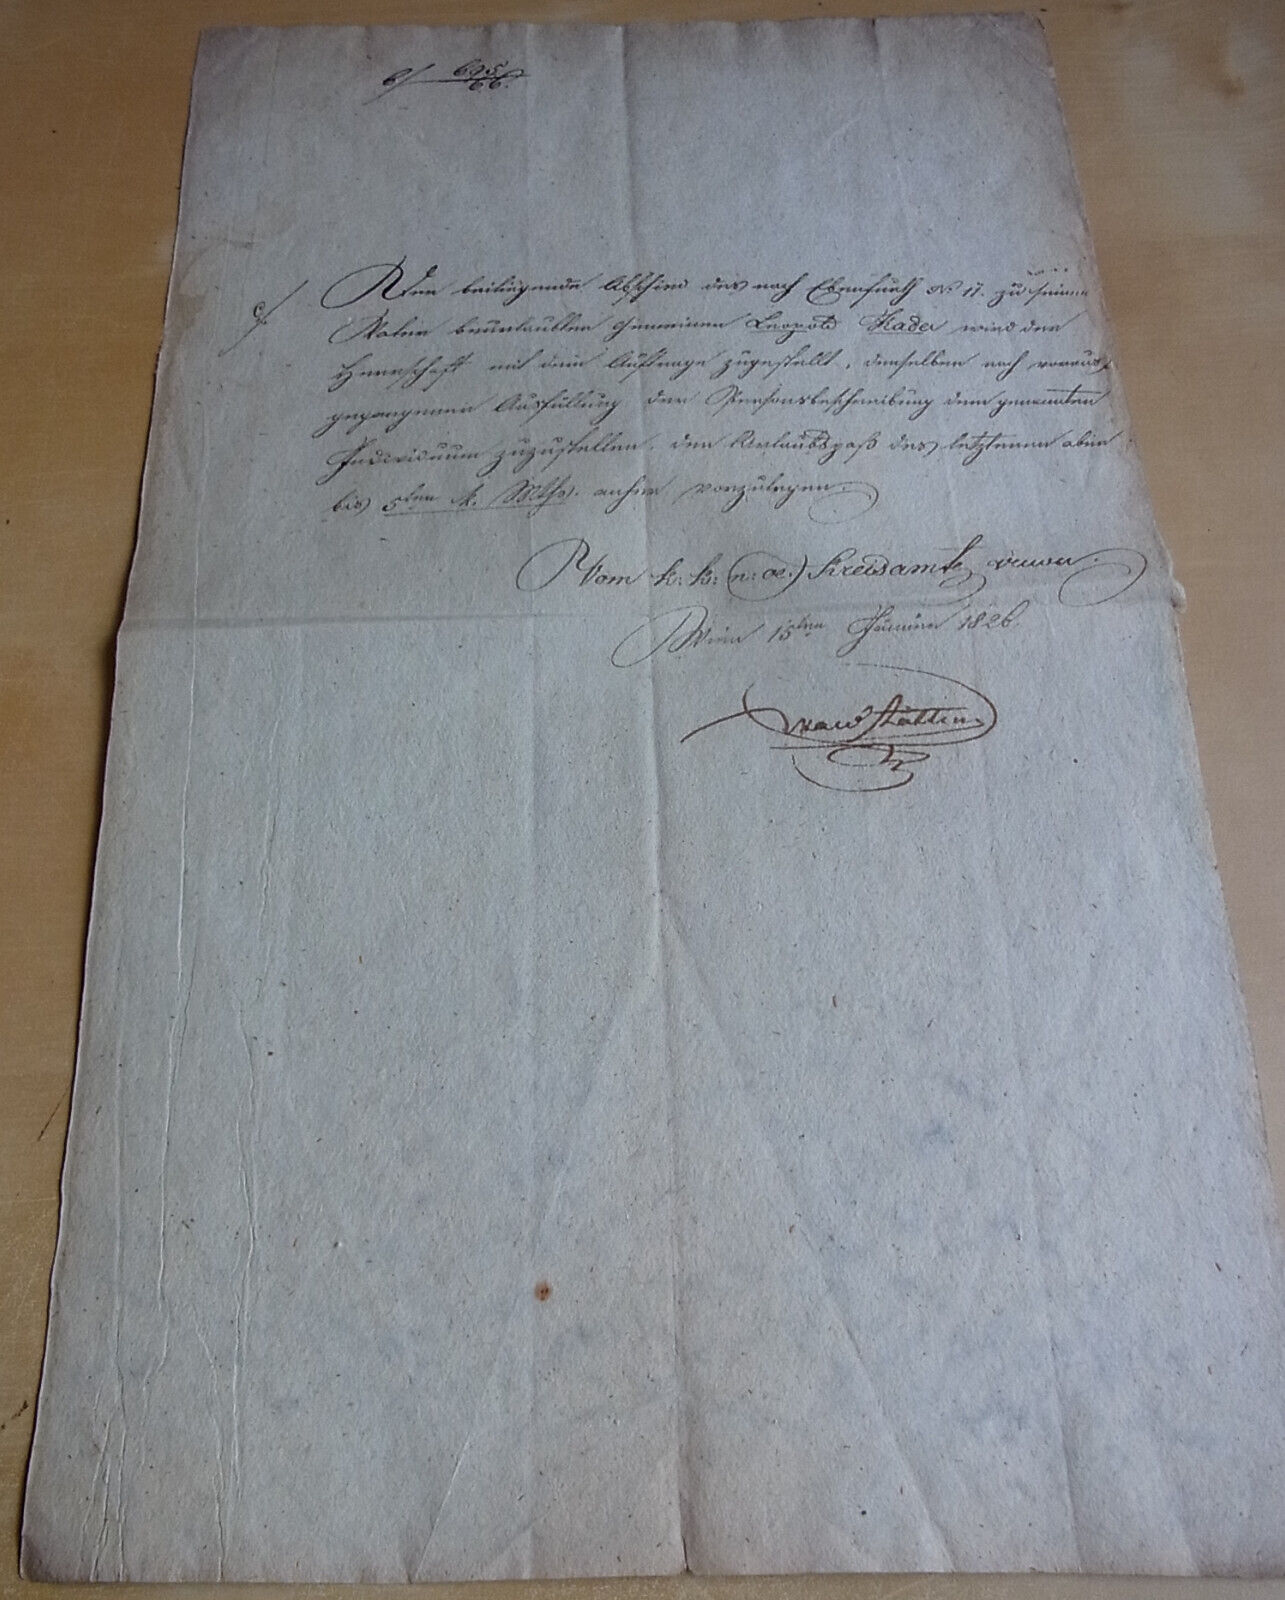 6/ 695/66.
Der beiliegende Abschied des nach Ebenfurth No 17. zu seinem
Vater beurlaubten Gemeinen Leopold Kader wird der
Herrschaft mit dem Auftrage zugestellt, denselben nach voraus
gegangener Ausfüllung der Personsbeschreibung dem genannten
Individuum zuzustellen, den Urlaubspaß des letzteren aber
bis 5ten k. Mths. anher vorzulegen.
Vom k: k: (n: oe:) Kreisamte
Wien 15ten Jänner 1826.